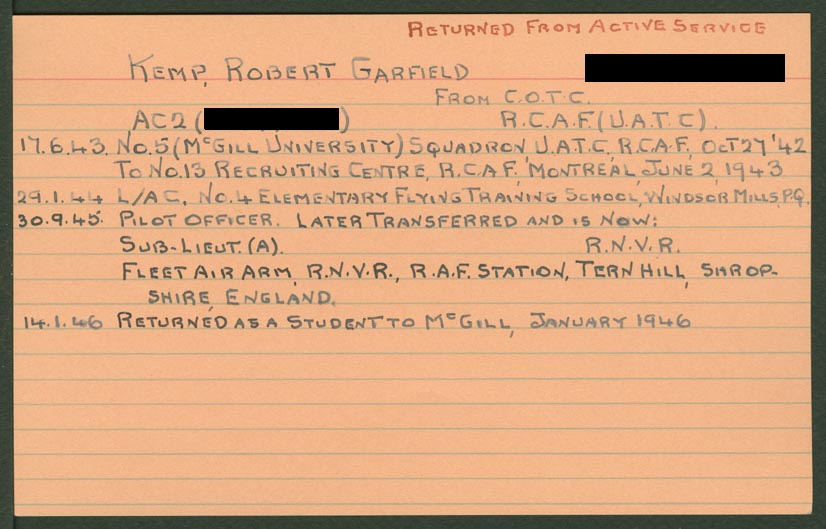 RETURNED FROM ACTIVE SERVICE
KEMP, ROBERT GARFIELD
FROM C.O.T.C.
AC2 ( ) R.C.A.F. (U.A.T.C).
17.6.43. No. 5 (McGILL UNIVERSITY) SQUADRON U.A.T.C., R.C.A.F., OCT 27 '42
TO No. 13 RECRUITING CENTRE, R.C.A.F. MONTREAL, JUNE 2, 1943
29.1.44 L/AC, No. 4 ELEMENTARY FLYING TRAINING SCHOOL, WINDSOR MILLS, P.Q.
30.9.45. PILOT OFFICER. LATER TRANSFERRED AND IS NOW:
SUB-LIEUT. (A). R.N.V.R.
FLEET AIR ARM, R.N.V.R., R.A.F. STATION, TERN HILL, SHROP-
SHIRE, ENGLAND.
14.1.46 RETURNED AS A STUDENT TO McGILL, JANUARY 1946